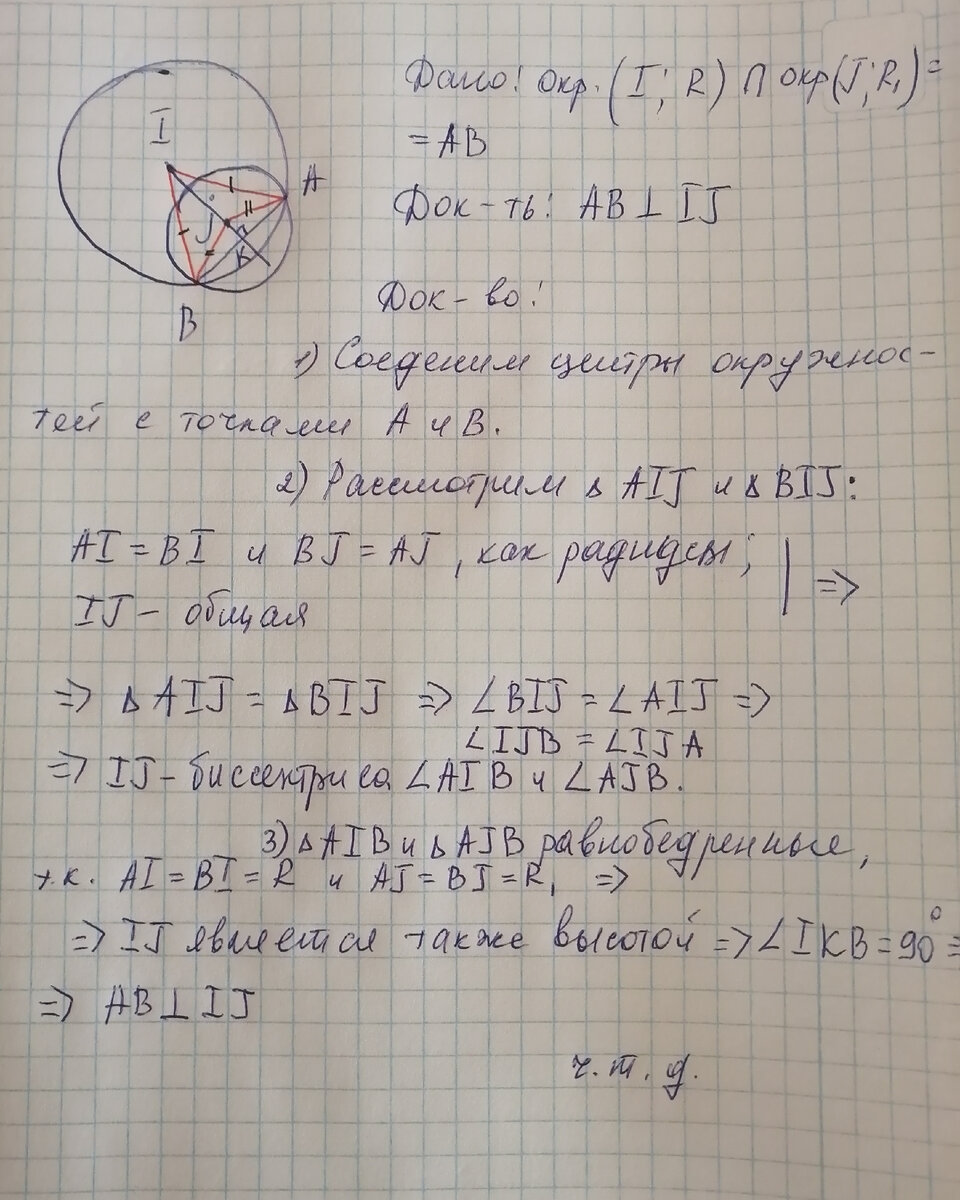 I
A
J
K
B
Дано: окр. (I; R) ∩ окр(J; R₁) =
= AB
Док-ть: AB ⊥ IJ
Док-во:
1) Соеденим центры окружнос-
тей с точками A и B.
2) Рассмотрим Δ AIJ и Δ BIJ:
AI = BI и BJ = AJ, как радиусы;
IJ - общая | =>
=> Δ AIJ = Δ BIJ => ∠BIJ = ∠AIJ =>
∠IJB = ∠IJA
=> IJ - биссектриса ∠AIB и ∠AJB.
3) Δ AIB и Δ AJB равнобедренные,
т.к. AI = BI = R и AJ = BJ = R₁ =>
=> IJ является также высотой => ∠IKB = 90° =
=> AB ⊥ IJ
ч.т.д.